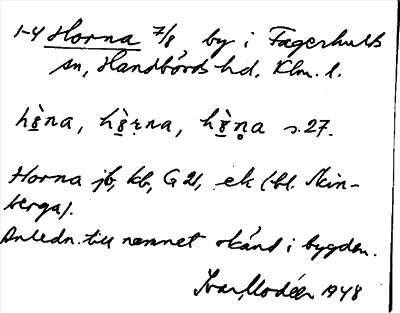 1-4 Horna 7/8, by i Fagerhults
sn, Handbörds hd, Klm. l.
hè̱na, hè̱rna, hè̱ṇa s. 27.
Horna jb, kb, G 21, ek (bl. Skin-
berga).
Anledn. till namnet okänd i bygden.
Ivar Modéer 1948